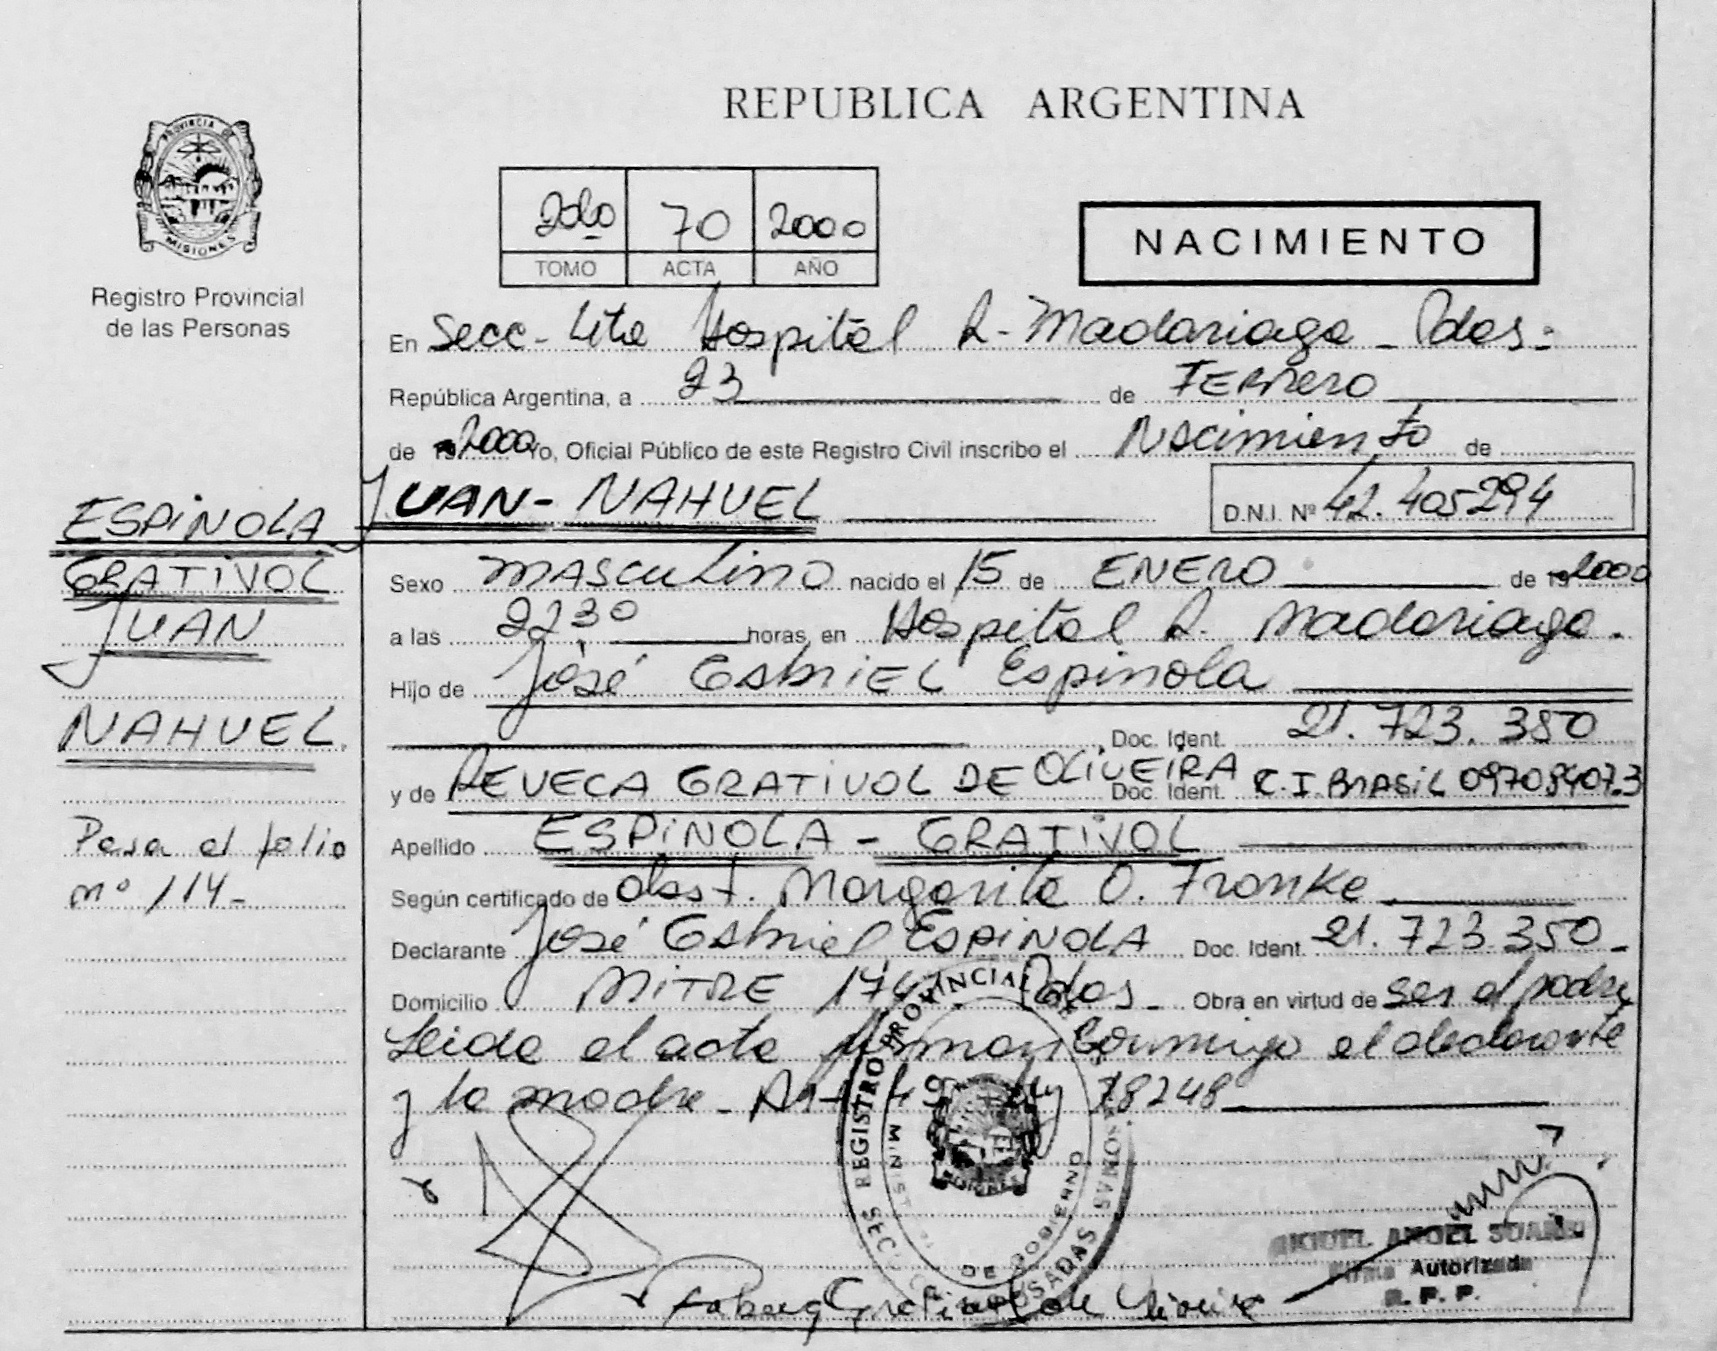 REPUBLICA ARGENTINA
PROVINCIA DE
MISIONES
Registro Provincial
de las Personas
70 2000
TOMO ACTA AÑO
NACIMIENTO
En Secc- Lita Hospital R- Madariaga - Pdas -
República Argentina, a 23 de FEBRERO
de 2000 Yo, Oficial Público de este Registro Civil inscribo el Nacimiento de
JUAN- NAHUEL D.N.I. Nº 42.405294
ESPINOLA
GRATIVOL
JUAN
NAHUEL
Pasa al folio
nº 114-
Sexo MASCULINO nacido el 15 de ENERO de 2000
a las 22:30 horas, en Hospital R. Madariaga.
Hijo de José GABRIEL Espinola
Doc. Ident. 21.723.350
y de REVECA GRATIVOL DE OLIVEIRA Doc. Ident. C.I BRASIL
Apellido ESPINOLA - GRATIVOL
Según certificado de obst. Margarita O. Franke
Declarante José Gabriel ESPINOLA Doc. Ident. 21.723.350-
Domicilio MITRE Pdas - Obra en virtud de ser el padre
Leida el acta firman conmigo el declarante
y la madre - Art 49 Ley 18248
REGISTRO PROVINCIAL DE LAS PERSONAS
MINIST DE GOBIERNO
SECC POSADAS
MISIONES
MIGUEL ANGEL
Firma Autorizada
R. P. P.